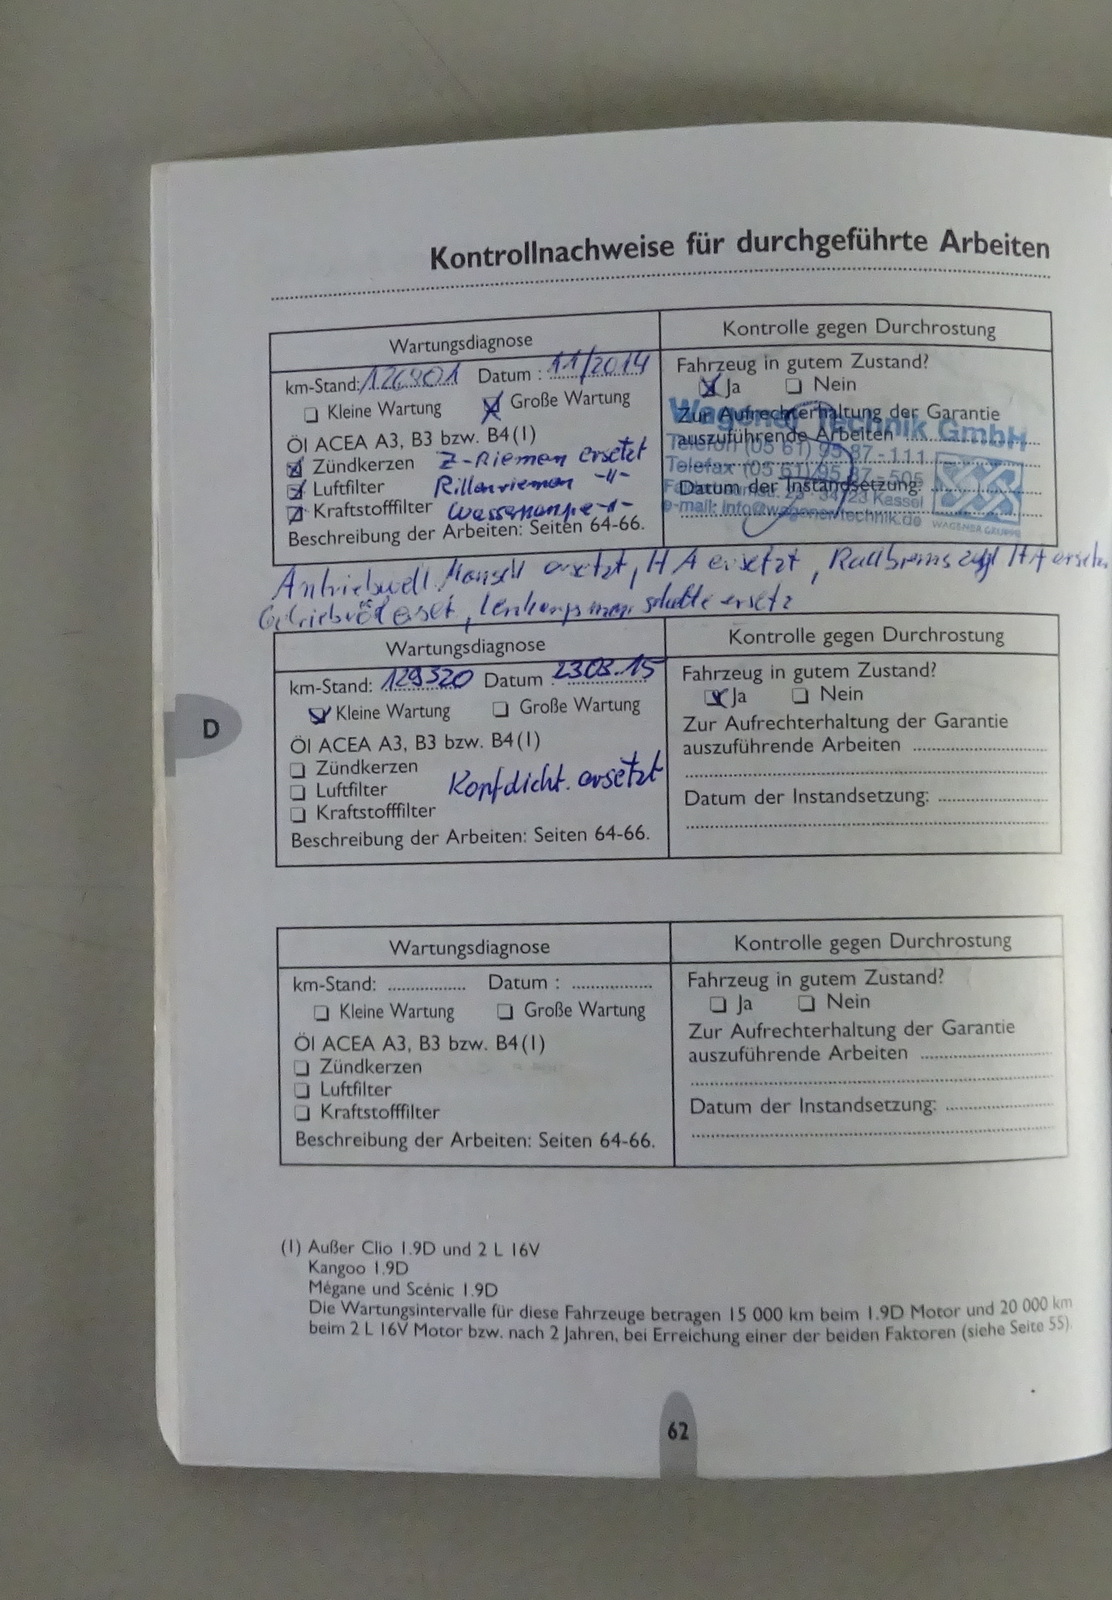 Kontrollnachweise für durchgeführte Arbeiten
Wartungsdiagnose
km-Stand: 126901 Datum : 11/2014
❏ Kleine Wartung ☒ Große Wartung
Öl ACEA A3, B3 bzw. B4(1)
☒ Zündkerzen Z-Riemen ersetzt
☒ Luftfilter Rillenriemen -"-
☒ Kraftstofffilter Wasserpumpe -"-
Beschreibung der Arbeiten: Seiten 64-66.
Kontrolle gegen Durchrostung
Fahrzeug in gutem Zustand?
☒ Ja ❏ Nein
Zur Aufrechterhaltung der Garantie
auszuführende Arbeiten
Datum der Instandsetzung:
Wagener Technik GmbH
Telefon (05 61) 95 87 - 111
Telefax (05 61) 95 87 - 505
34123 Kassel
e-mail: info@wagener-technik.de
WAGENER GRUPPE
ersetzt, HA ersetzt, HA
ersetzt
Wartungsdiagnose
km-Stand: 129320 Datum : 23.03.15
☒ Kleine Wartung ❏ Große Wartung
Öl ACEA A3, B3 bzw. B4(1)
❏ Zündkerzen
❏ Luftfilter Kopfdicht. ersetzt
❏ Kraftstofffilter
Beschreibung der Arbeiten: Seiten 64-66.
Kontrolle gegen Durchrostung
Fahrzeug in gutem Zustand?
☒ Ja ❏ Nein
Zur Aufrechterhaltung der Garantie
auszuführende Arbeiten
Datum der Instandsetzung:
D
Wartungsdiagnose
km-Stand: Datum :
❏ Kleine Wartung ❏ Große Wartung
Öl ACEA A3, B3 bzw. B4(1)
❏ Zündkerzen
❏ Luftfilter
❏ Kraftstofffilter
Beschreibung der Arbeiten: Seiten 64-66.
Kontrolle gegen Durchrostung
Fahrzeug in gutem Zustand?
❏ Ja ❏ Nein
Zur Aufrechterhaltung der Garantie
auszuführende Arbeiten
Datum der Instandsetzung:
(1) Außer Clio 1.9D und 2 L 16V
Kangoo 1.9D
Mégane und Scénic 1.9D
Die Wartungsintervalle für diese Fahrzeuge betragen 15 000 km beim 1.9D Motor und 20 000 km
beim 2 L 16V Motor bzw. nach 2 Jahren, bei Erreichung einer der beiden Faktoren (siehe Seite 55).
62